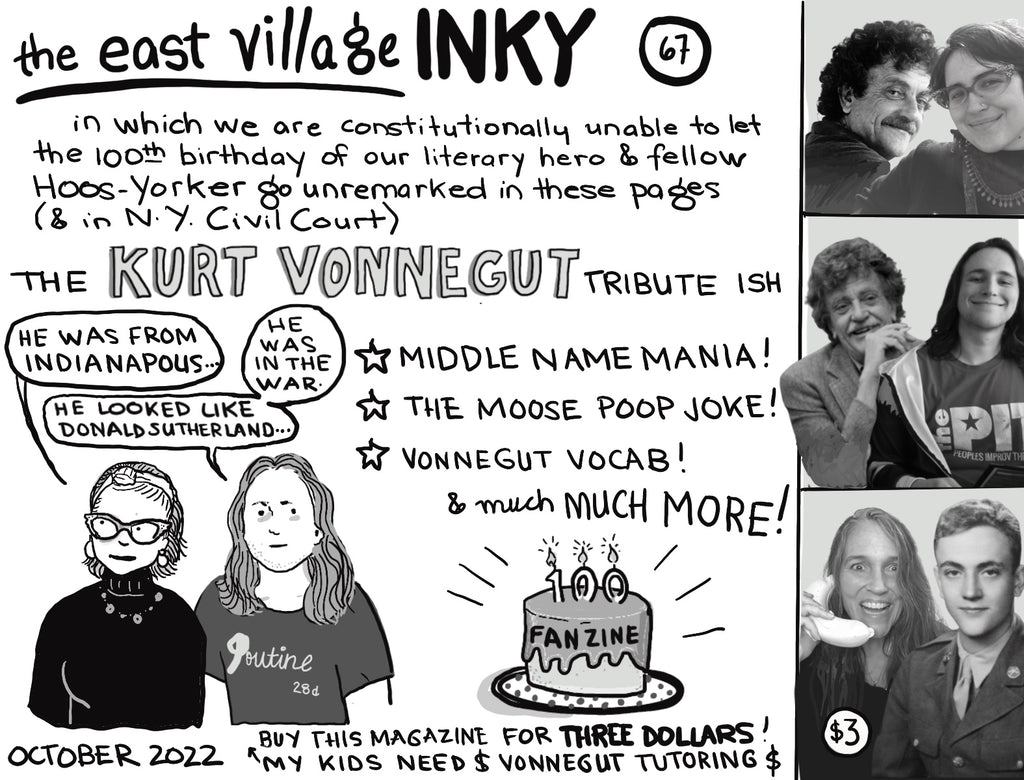 the east village INKY 67
in which we are constitutionally unable to let
the 100th birthday of our literary hero & fellow
Hoos-Yorker go unremarked in these pages
(& in N.Y. Civil Court)
THE KURT VONNEGUT TRIBUTE ISH
HE WAS FROM
INDIANAPOLIS...
HE
WAS
IN THE
WAR.
HE LOOKED LIKE
DONALD SUTHERLAND...
☆ MIDDLE NAME MANIA!
☆ THE MOOSE POOP JOKE!
☆ VONNEGUT VOCAB!
& much MUCH MORE!
100
FANZINE
Poutine
28d
OCTOBER 2022
BUY THIS MAGAZINE FOR THREE DOLLARS!
MY KIDS NEED $ VONNEGUT TUTORING $
the
PIT
PEOPLES IMPROV TH
$3